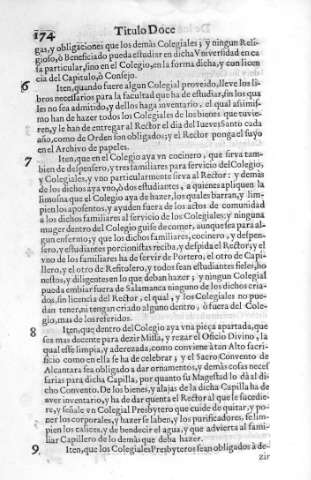 174 Titulo Doce
gas, y obligaciones que los demàs Colegiales; y ningun Reli-
gioso, ò Beneficiado pueda estudiar en dicha Vniversidad en ca
sa particular, sino en el Colegio, en la forma dicha, y con licen
cia del Capitulo, ò Consejo.
6 Iten, quando fuere algun Colegial proveido, lleve los li-
bros necessarios para la facultad que ha de estudiar, sin los qua
les no sea admitido, y dellos haga inventario, el qual assimis-
mo han de hazer todos los Colegiales de los bienes que tuvie-
ren, y le han de entregar al Rector el dia del Iueves Santo cada
año, como de Orden son obligados; y el Rector ponga el suyo
en el Archivo de papeles.
7 Iten, que en el Colegio aya vn cocinero, que sirva tam-
bien de despensero, y tres familiares para servicio del Colegio,
y Colegiales, y vno particularmente sirva al Rector: y demàs
de los dichos aya vno, ò dos estudiantes, a quienes apliquen la
limosna que el Colegio aya de hazer, los quales barran, y lim-
pien los aposentos, y ayuden fuera de los actos de comunidad
a los dichos familiares al servicio de los Colegiales; y ninguna
muger dentro del Colegio guise de comer, aunque sea para al-
gun enfermo; y que los dichos familiares, cocinero, y despen-
sero, y estudiantes porcionistas reciba, y despida el Rector; y el
vno de los familiares ha de servir de Portero, el otro de Capi-
llero, y el otro de Refitolero, y todos sean estudiantes fieles, ho
nestos, y diligentes en lo que deban hazer; y ningun Colegial
pueda embiar fuera de Salamanca ninguno de los dichos cria-
dos, sin licencia del Rector, el qual, y los Colegiales no pue-
dan tener, ni tengan criado alguno dentro, ò fuera del Cole-
gio, mas de los referidos.
8 Iten, que dentro del Colegio aya vna pieça apartada, que
sea mas decente para dezir Missa, y rezar el Oficio Divino, la
qual esse limpia, y aderezada, como conviene à tan Alto sacri-
ficio como en ella se ha de celebrar; y el Sacro Convento de
Alcantara sea obligado a dar ornamentos, y demàs cosas neces
sarias para dicha Capilla, por quanto su Magestad lo dà al di-
cho Convento. De los bienes, y alajas de la dicha Capilla ha de
aver inventario, y ha de dar quenta el Rector al que le sucedie-
re, y señale vn Colegial Presbytero que cuide de quitar, y po-
ner los corporales, y hazer se laben, y los purificadores, se lim-
pien los calices, y de bendecir el agua, y que advierta al fami-
liar Capillero de lo demàs que deba hazer.
9 Iten, que los Colegiales Presbyteros sean obligados à de-
zir